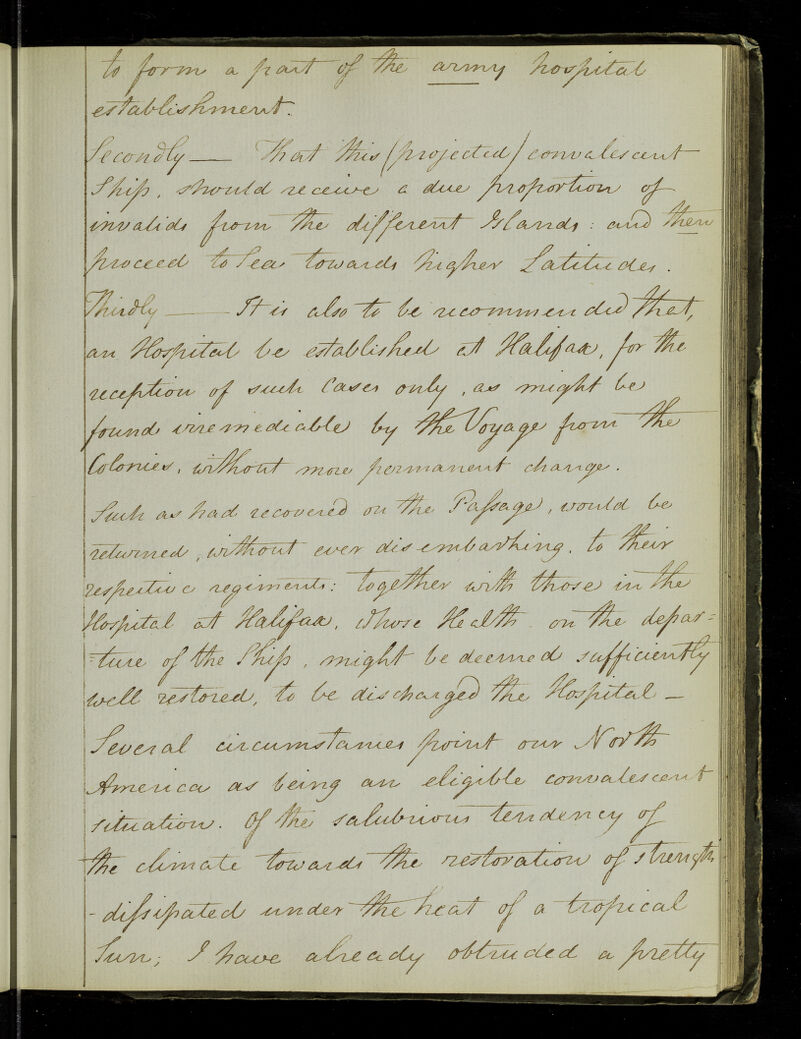 to form a part of the army hospital
establishment.
Secondly — That this (projected) convalescent
Ship, should receive a due proportion of
invalids from the different Islands: and then
proceed to Sea towards higher Latitudes.
Thirdly — It is also to be recommended that,
an Hospital be established at Halifax, for the
reception of such Cases only, as might be
found irremediable by the Voyage from the
Colonies, without more permanent change.
Such as had recovered on the Passage, would be
returned, without ever disembarking, to their
respective regiments: together with those in the
Hospital at Halifax, whose Health on the depar=
=ture of the Ship, might be deemed sufficiently
well restored, to be discharged the Hospital —
Several circumstances point our North
America as being an eligible convalescent
situation. Of the salubrious tendency of
the climate towards the restoration of strength
- dissipated under the heat of a tropical
Sun; I have already obtruded a pretty